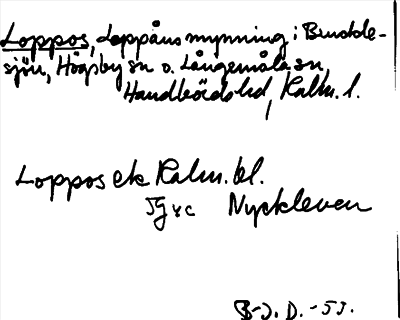 Loppos, Loppåns mynning i Brudde-
sjön, Högsby sn o. Långemåla sn,
Handbörds hd, Kalm. l.
Loppos ek Kalm. bl.
5g vc Nyckleven
B-J. D. -53.